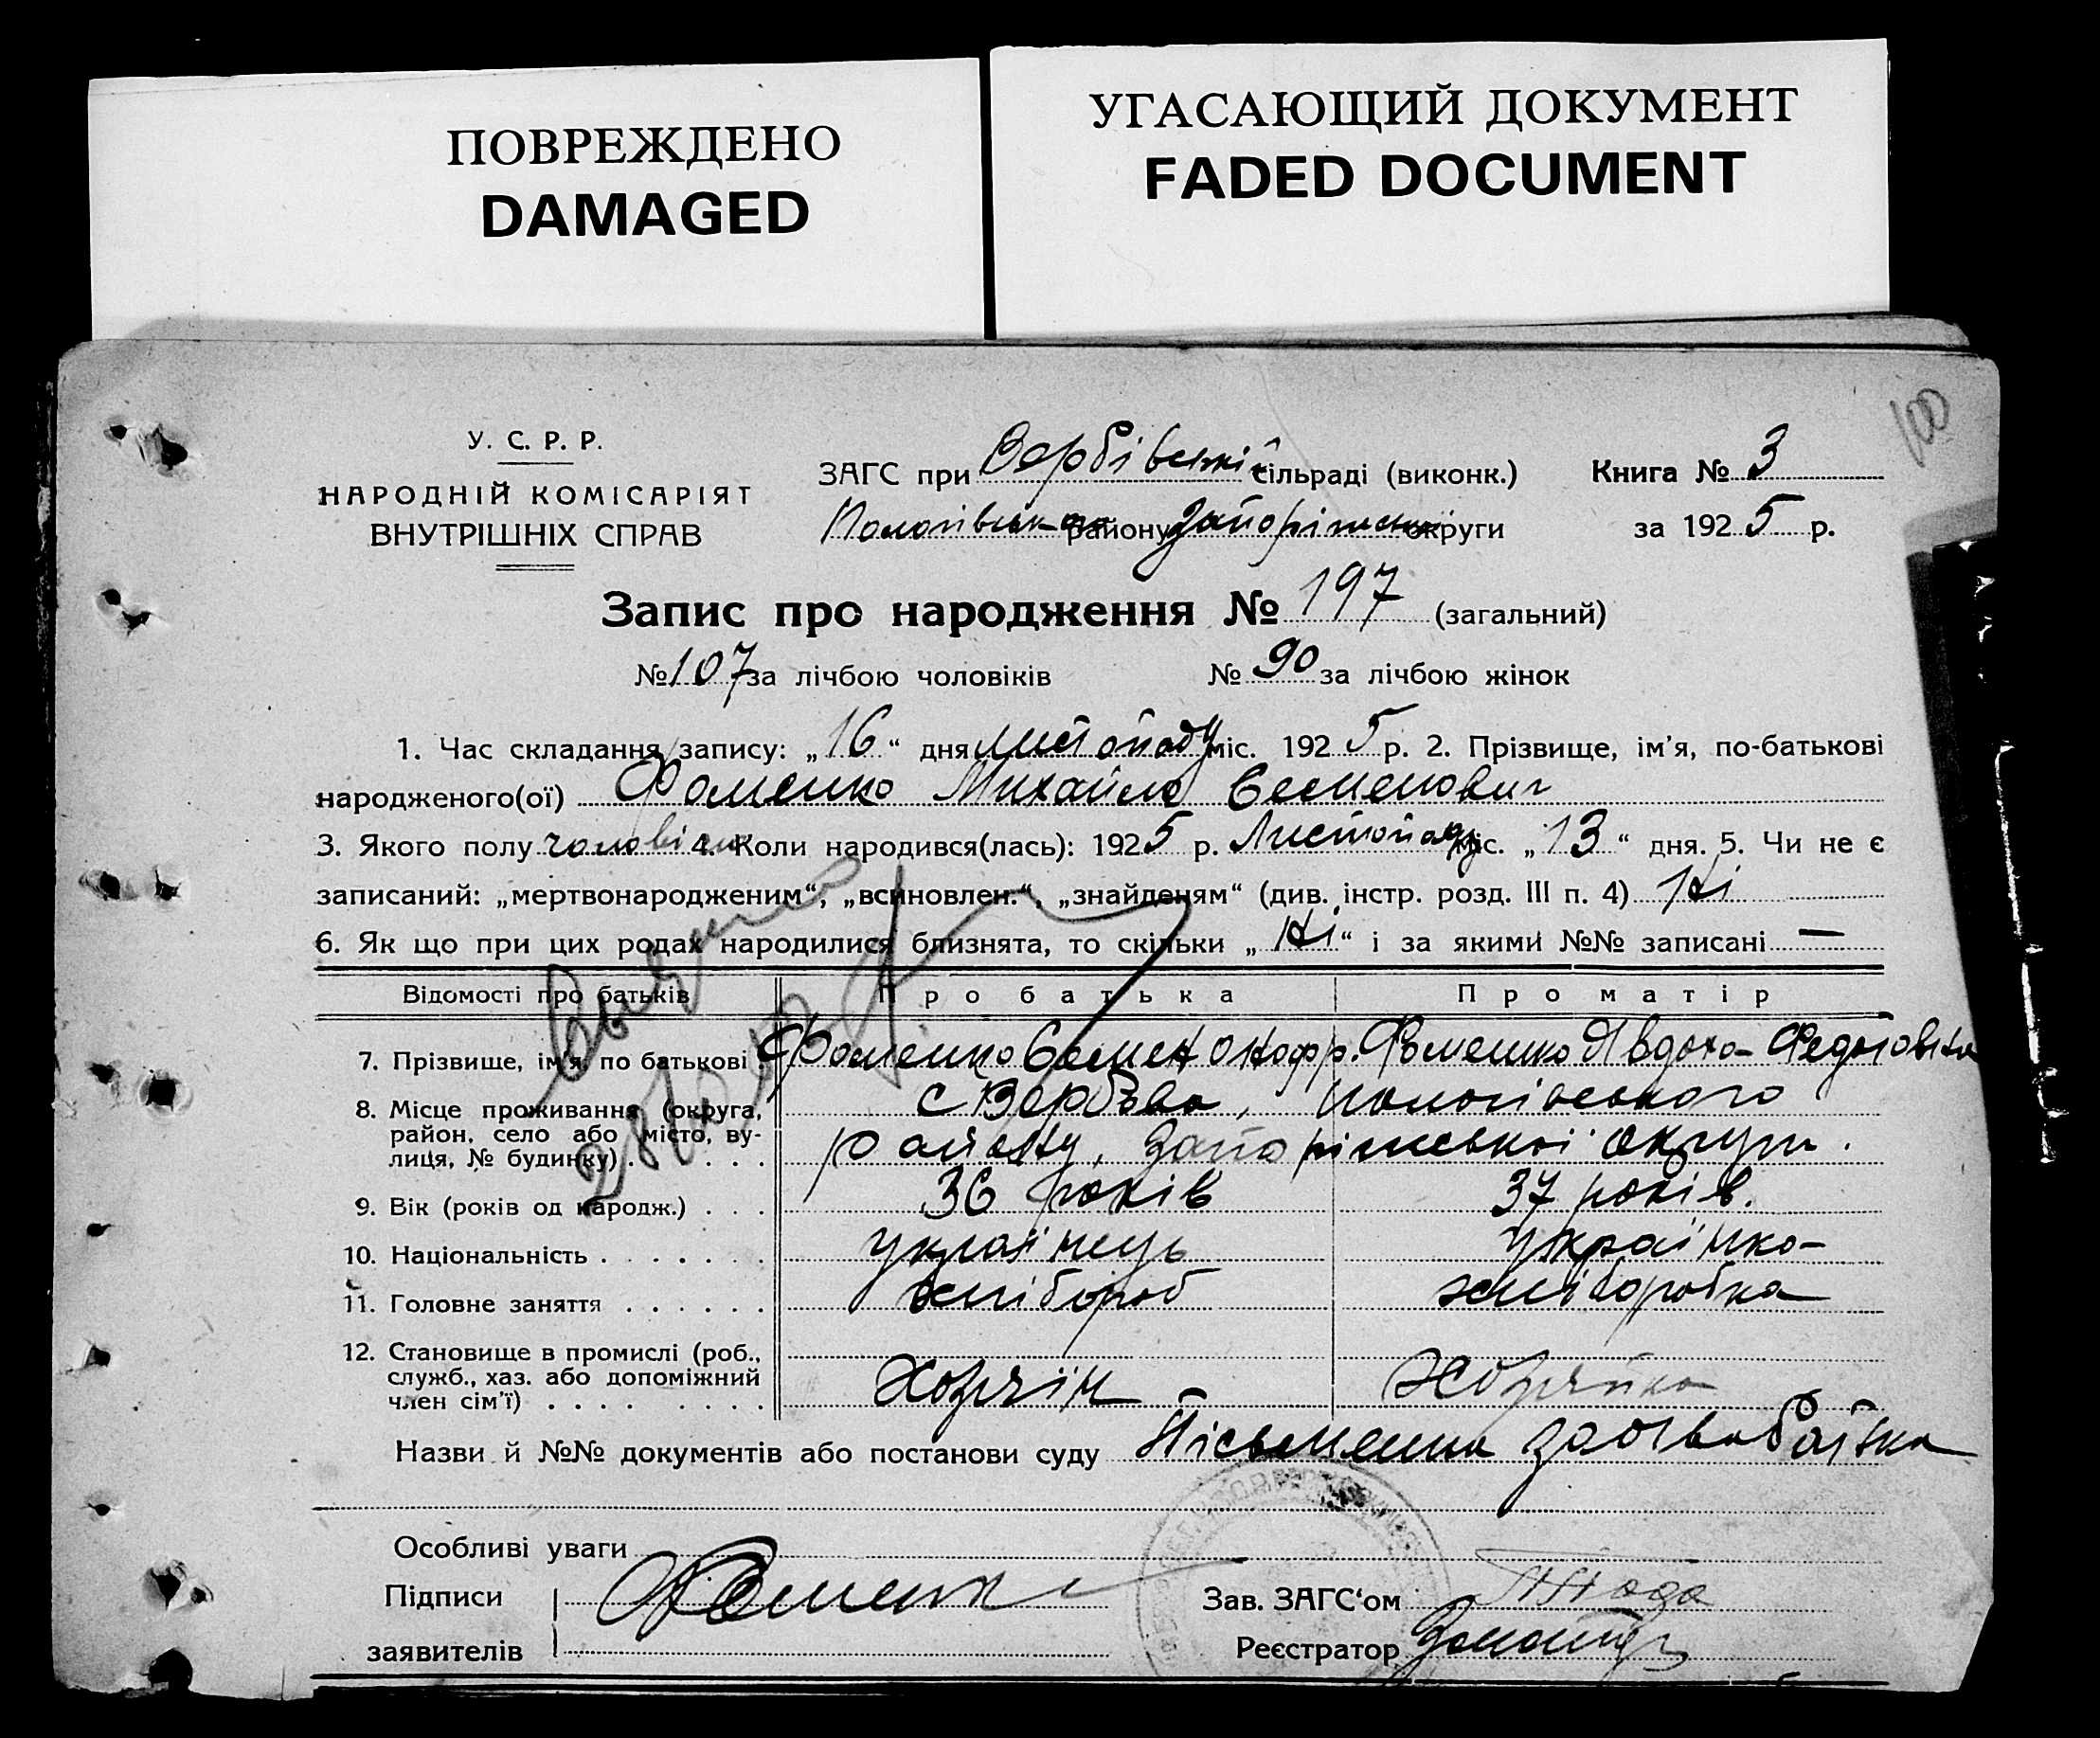 ПОВРЕЖДЕНО
DAMAGED
УГАСАЮЩИЙ ДОКУМЕНТ
FADED DOCUMENT
100
У. С. Р. Р.
НАРОДНІЙ КОМІСАРІЯТ
ВНУТРІШНІХ СПРАВ
ЗАГС при Вербівській сільраді (виконк.) Книга № 3
Пологівськаго району Запоріжської округи за 1925 р.
Запис про народження № 197 (загальний)
№ 107 за лічбою чоловіків № 90 за лічбою жінок
1. Час складання запису: „16“ дня листопаду міс. 1925 р. 2. Прізвище, ім'я, по-батькові
народженого(ої) Фоменко Михайло Семенович
3. Якого полу чоловічи 4. Коли народився(лась): 1925 р. Листопаду міс. „13“ дня. 5. Чи не є
записаний: „мертвонародженим“, „всиновлен.“, „знайденям“ (див. інстр. розд. III п. 4) Ні
6. Як що при цих родах народилися близнята, то скільки „Ні“ і за якими №№ записані —
Відомості про батьків Про батька Про матір
7. Прізвище, ім'я, по батькові . Фоменко Семен Онофр. Фоменко Явдоха Федотовна
8. Місце проживання (округа, с Вербова, Пологівського
район, село або місто, ву- району, Запоріжської округи.
лиця, № будинку) . . . . .
9. Вік (років од народж.) . . . 36 років 37 років.
10. Національність . . . . . . . українець українка
11. Головне заняття . . . . . . хлібороб хліборобка
12. Становище в промислі (роб.,
служб., хаз. або допоміжний Хозяїн Хозяйка
член сім'ї) . . . . . . . .
Назви й №№ документів або постанови суду Пісьменна заява батька
Особливі уваги
Підписи Фоменк Зав. ЗАГС'ом
заявителів Реєстратор